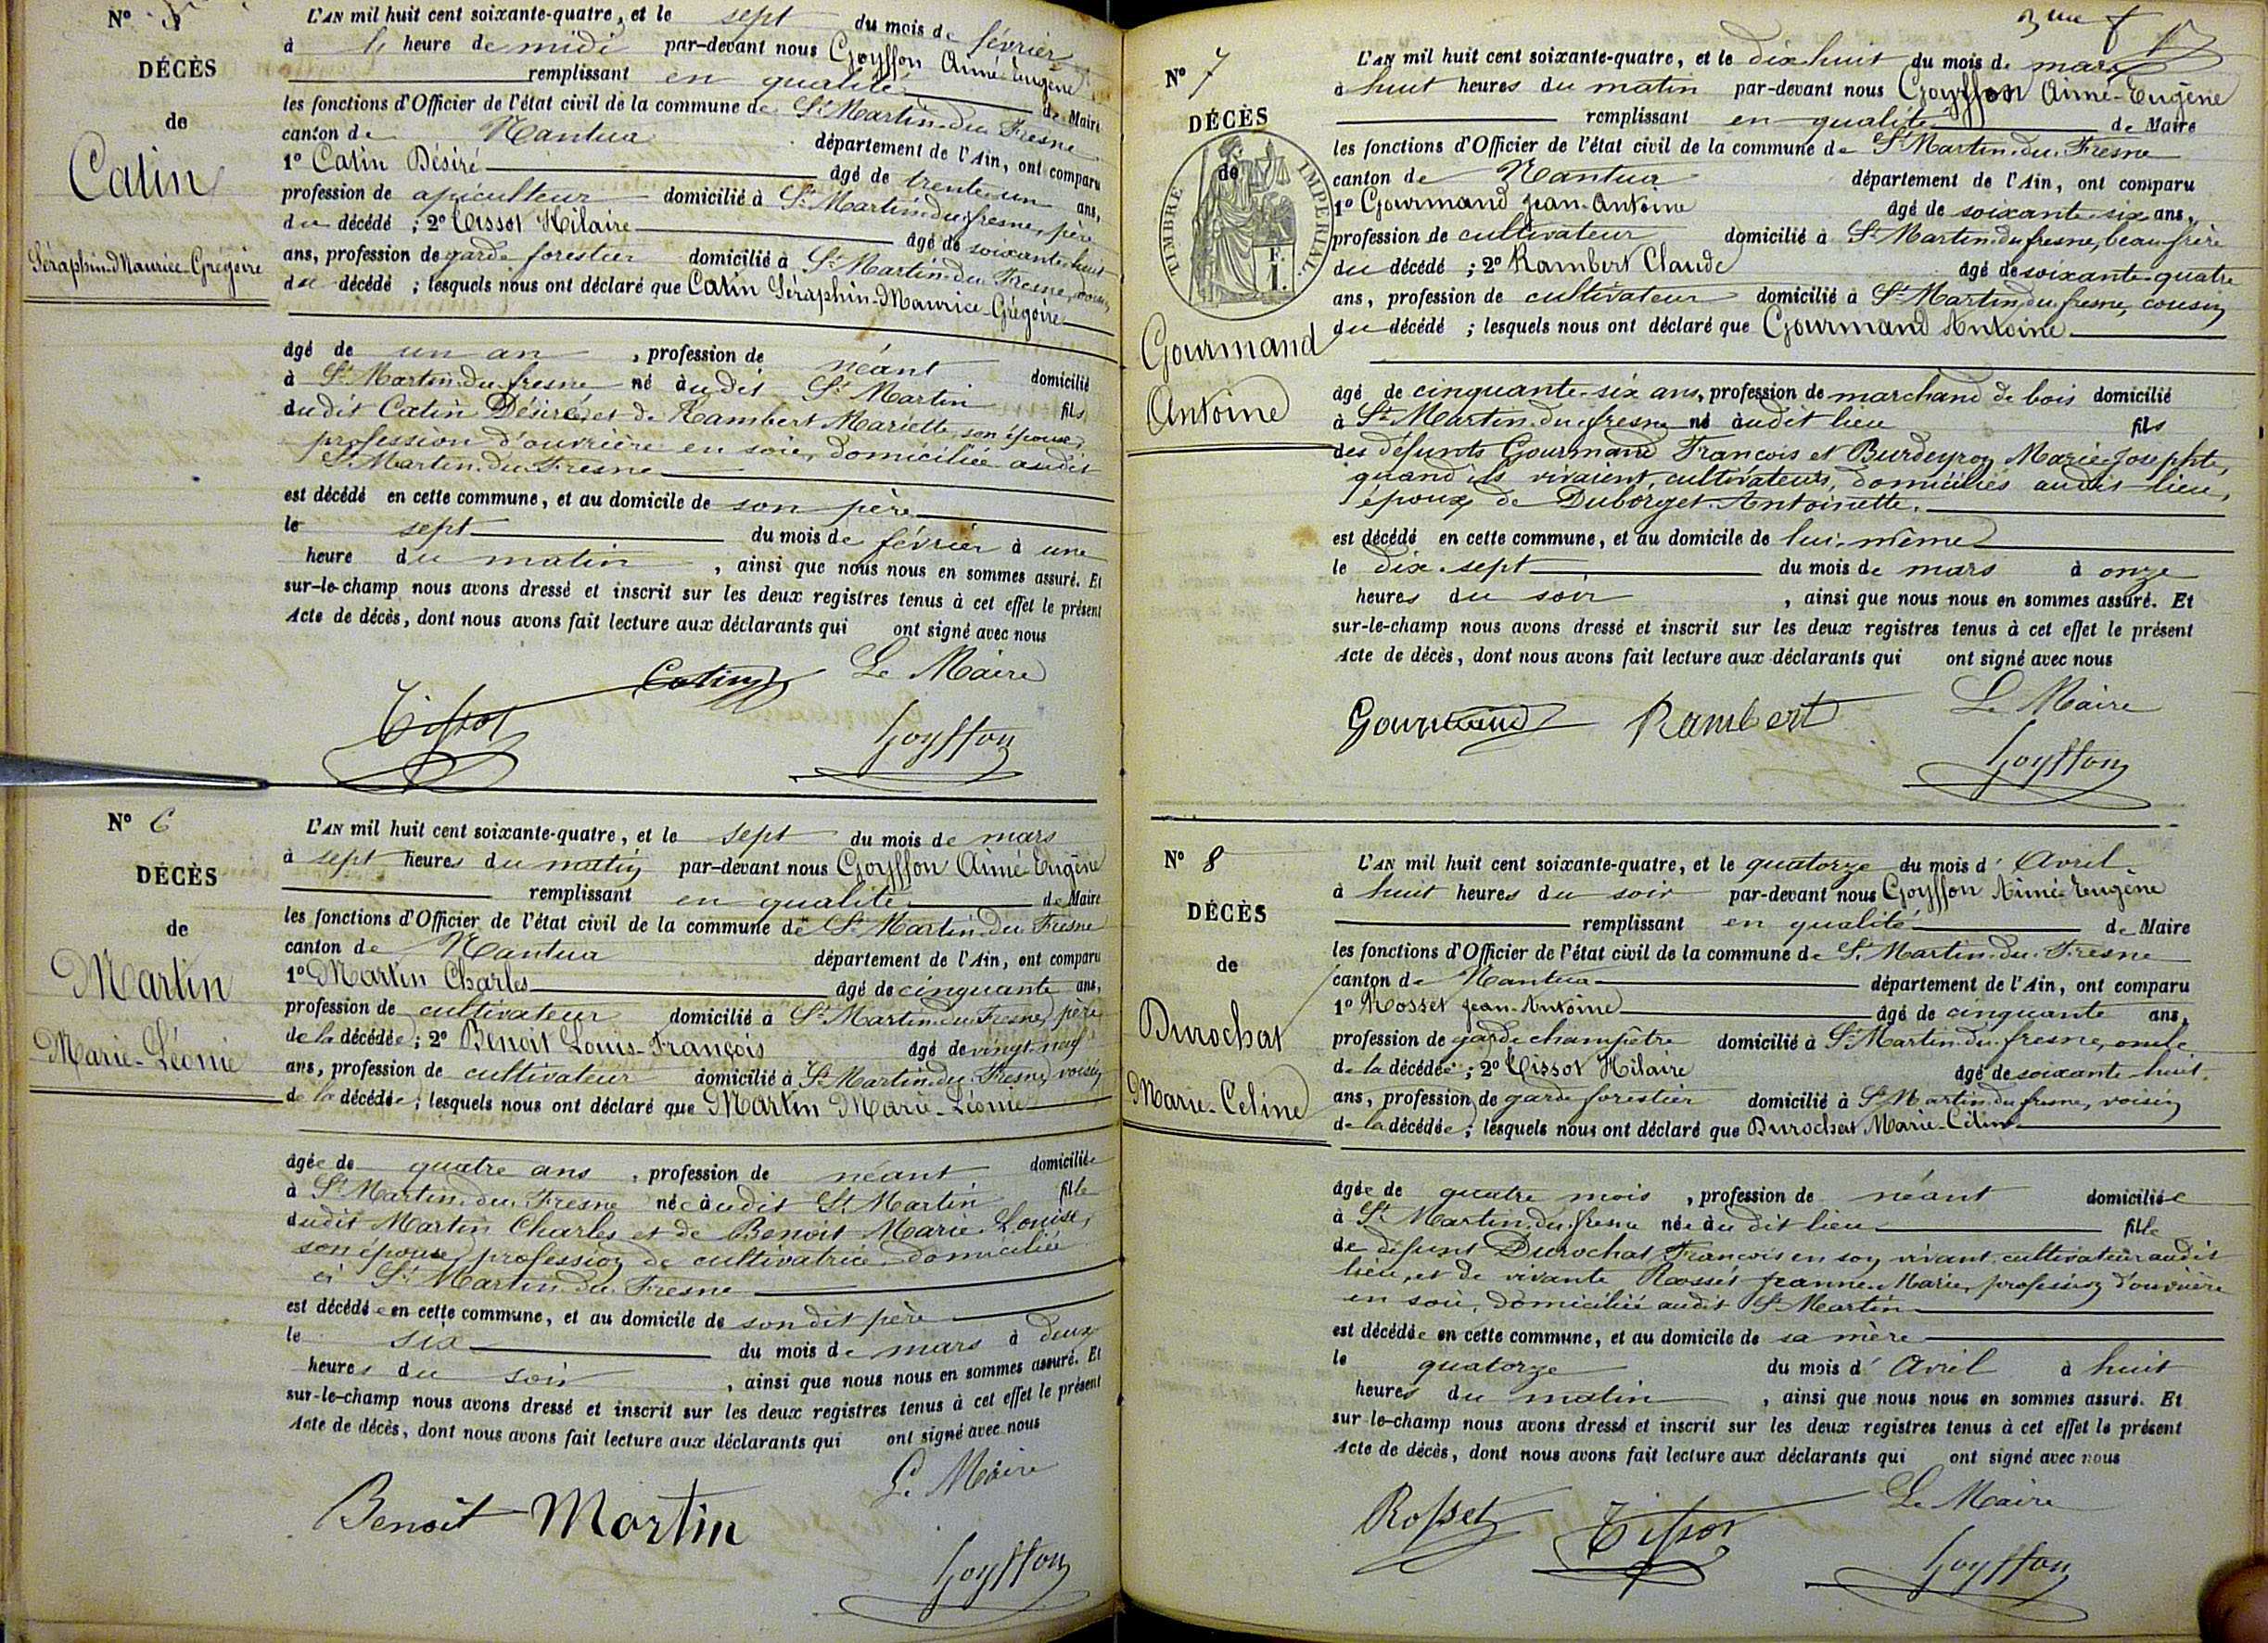 N° 5
DÉCÈS
de
Catin
Séraphin-Maurice-Grégoire
L'AN mil huit cent soixante-quatre, et le sept du mois de février
à heure de midi par-devant nous Goyffon Aimé-Eugène
remplissant en qualité de Maire
les fonctions d'Officier de l'état civil de la commune de St Martin-du-Fresne
canton de Nantua département de l'Ain, ont comparu
1° Catin Désiré âgé de trente-un ans,
profession de apiculteur domicilié à St Martin-du-fresne, père
du décédé ; 2° Tissot Hilaire âgé de soixante-huit
ans, profession de garde forestier domicilié à St Martin-du-Fresne, voisin
du décédé ; lesquels nous ont déclaré que Catin Séraphin-Maurice-Grégoire
âgé de un an , profession de néant domicilié
à St Martin-du-fresne né audit St Martin fils
dudit Catin Désiré, et de Rambert Mariette, son épouse,
profession d'ouvrière en soie, domiciliée audit
St Martin-du-Fresne
est décédé en cette commune, et au domicile de son père
le sept du mois de février à une
heure du matin , ainsi que nous nous en sommes assuré. Et
sur-le-champ nous avons dressé et inscrit sur les deux registres tenus à cet effet le présent
Acte de décès, dont nous avons fait lecture aux déclarants qui ont signé avec nous
Catin Le Maire
Tissot Goyffon
N° 6
DÉCÈS
de
Martin
Marie-Léonie
L'AN mil huit cent soixante-quatre, et le sept du mois de mars
à sept heures du matin par-devant nous Goyffon Aimé-Eugène
remplissant en qualité de Maire
les fonctions d'Officier de l'état civil de la commune de St Martin-du-Fresne
canton de Nantua département de l'Ain, ont comparu
1° Martin Charles âgé de cinquante ans,
profession de cultivateur domicilié à St Martin-du-Fresne, père
de la décédée ; 2° Benoit Louis-François âgé de vingt-neuf
ans, profession de cultivateur domicilié à St Martin-du-Fresne, voisin
de la décédée ; lesquels nous ont déclaré que Martin Marie-Léonie
âgée de quatre ans , profession de néant domiciliée
à St Martin-du-Fresne née audit St Martin fille
dudit Martin Charles et de Benoit Marie-Louise,
son épouse, profession de cultivatrice domiciliée
à St Martin-du-Fresne
est décédée en cette commune, et au domicile de son dit père
le six du mois de mars à deux
heures du soir , ainsi que nous nous en sommes assuré. Et
sur-le-champ nous avons dressé et inscrit sur les deux registres tenus à cet effet le présent
Acte de décès, dont nous avons fait lecture aux déclarants qui ont signé avec nous
Le Maire
Benoit Martin
Goyffon
3me f
N° 7
DÉCÈS
de
TIMBRE IMPERIAL.
F.
1.
Gourmand
Antoine
L'AN mil huit cent soixante-quatre, et le dix-huit du mois de mars
à huit heures du matin par-devant nous Goyffon Aimé-Eugène
remplissant en qualité de Maire
les fonctions d'Officier de l'état civil de la commune de St Martin-du-Fresne
canton de Nantua département de l'Ain, ont comparu
1° Gourmand Jean-Antoine âgé de soixante-six ans,
profession de cultivateur domicilié à St Martin-du-fresne, beau-frère
du décédé ; 2° Rambert Claude âgé de soixante-quatre
ans, profession de cultivateur domicilié à St Martin-du-fresne, cousin
du décédé ; lesquels nous ont déclaré que Gourmand Antoine
âgé de cinquante-six ans, profession de marchand de bois domicilié
à St Martin-du-fresne né audit lieu fils
des défunts Gourmand François et Burdeyron Marie-Josephte,
quand ils vivaient, cultivateurs, domiciliés audit lieu,
époux de Duborget Antoinette.
est décédé en cette commune, et au domicile de lui-même
le dix-sept du mois de mars à onze
heures du soir , ainsi que nous nous en sommes assuré. Et
sur-le-champ nous avons dressé et inscrit sur les deux registres tenus à cet effet le présent
Acte de décès, dont nous avons fait lecture aux déclarants qui ont signé avec nous
Gourmand Rambert Le Maire
Goyffon
N° 8
DÉCÈS
de
Durochat
Marie-Celine
L'AN mil huit cent soixante-quatre, et le quatorze du mois d' Avril
à huit heures du soir par-devant nous Goyffon Aimé-Eugène
remplissant en qualité de Maire
les fonctions d'Officier de l'état civil de la commune de St Martin-du-Fresne
canton de Nantua département de l'Ain, ont comparu
1° Rosset Jean-Antoine âgé de cinquante ans,
profession de garde champêtre domicilié à St Martin-du-fresne, oncle
de la décédée ; 2° Tissot Hilaire âgé de soixante-huit
ans, profession de garde forestier domicilié à St Martin-du-fresne, voisin
de la décédée ; lesquels nous ont déclaré que Durochat Marie-Céline
âgée de quatre mois , profession de néant domiciliée
à St Martin-du-fresne née au dit lieu fille
de défunt Durochat François en son vivant cultivateur audit
lieu, et de vivante Rosset Jeanne-Marie, profession d'ouvrière
en soie, domiciliée audit St Martin
est décédée en cette commune, et au domicile de sa mère
le quatorze du mois d' Avril à huit
heures du matin , ainsi que nous nous en sommes assuré. Et
sur-le-champ nous avons dressé et inscrit sur les deux registres tenus à cet effet le présent
Acte de décès, dont nous avons fait lecture aux déclarants qui ont signé avec nous
Rosset Tissot Le Maire
Goyffon